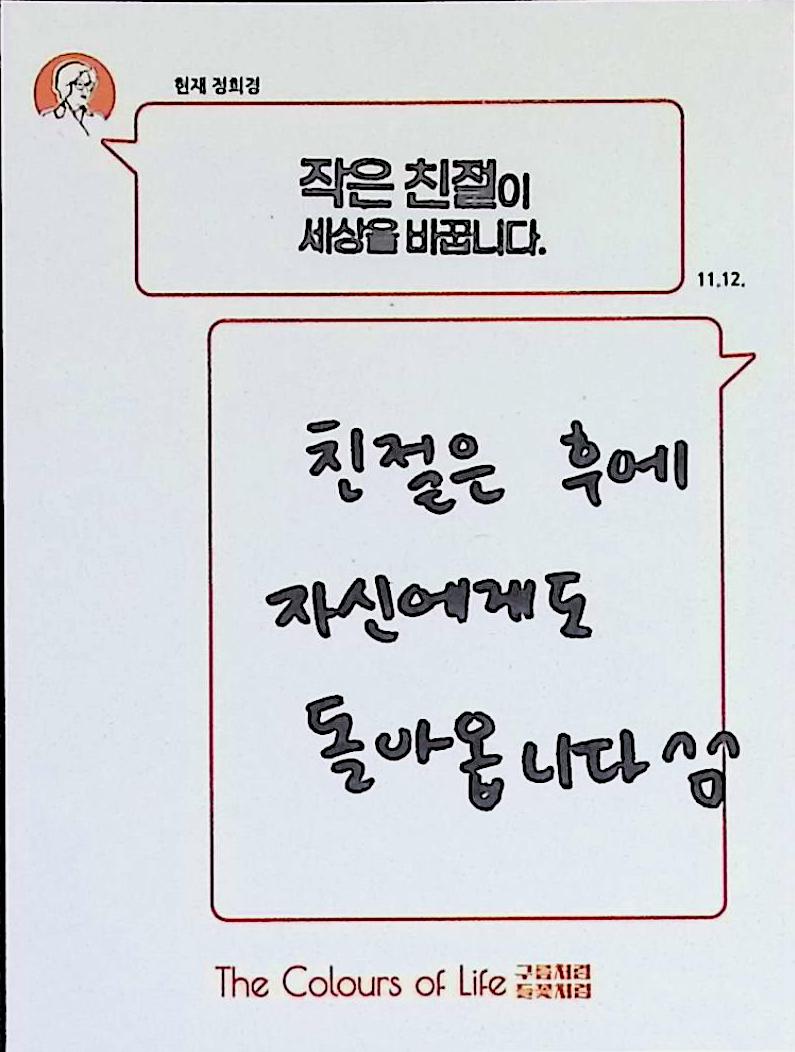 현재 정희경
작은 친절이
세상을 바꿉니다.
11.12.
친절은 후에
자신에게도
돌아옵니다
The Colours of Life 구름처럼
들꽃처럼